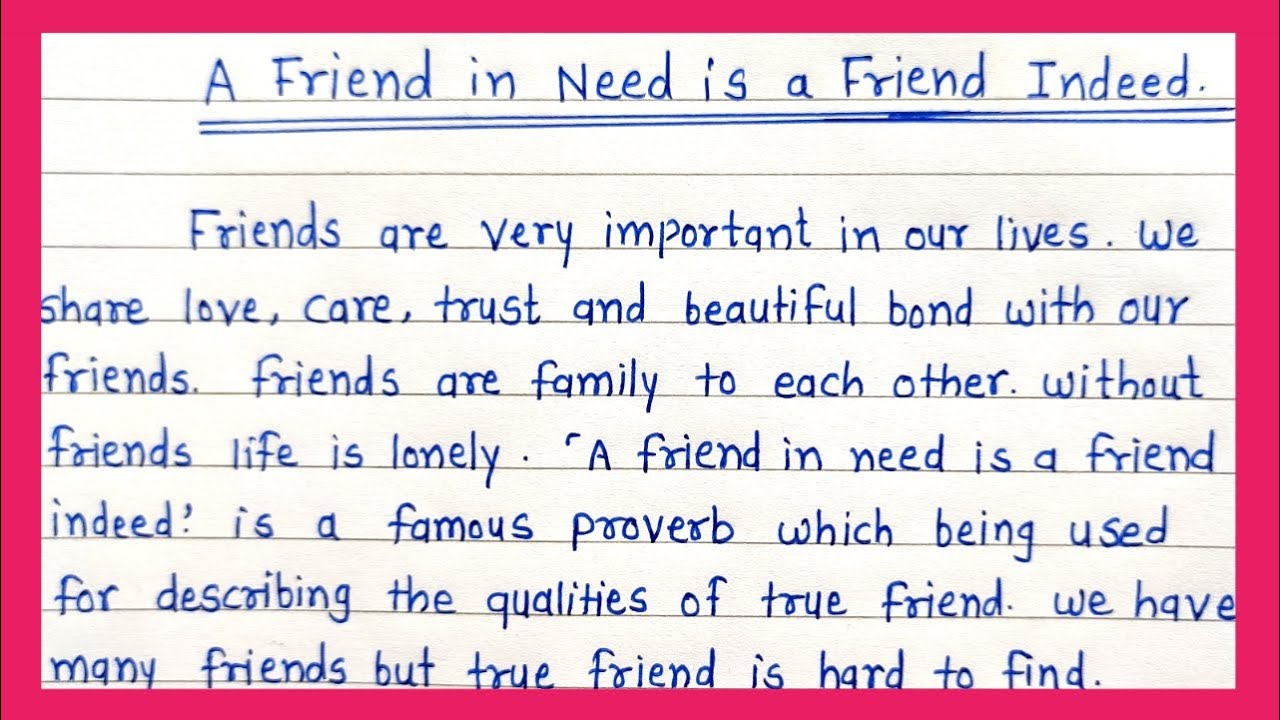 A Friend in Need is a Friend Indeed.
Friends are very important in our lives. We
share love, care, trust and beautiful bond with our
friends. friends are family to each other. without
friends life is lonely. 'A friend in need is a friend
indeed.' is a famous proverb which being used
for describing the qualities of true friend. we have
many friends but true friend is hard to find.